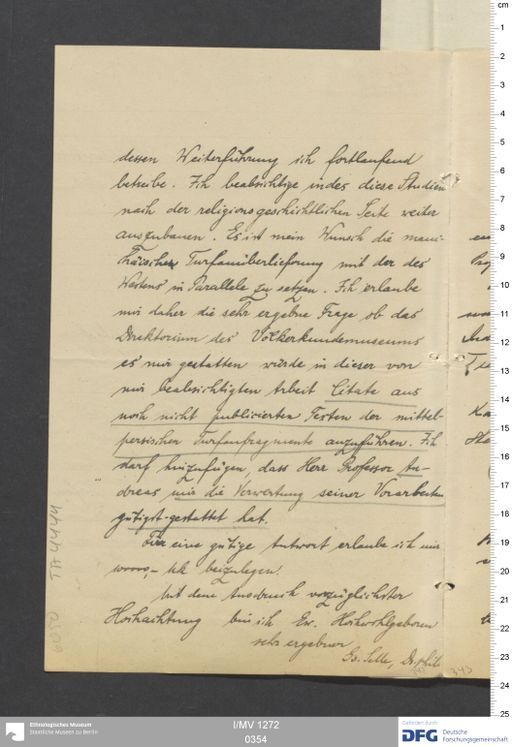 dessen Weiterführung ich fortlaufend
betreibe. Ich beabsichtige indes diese Studien
nach der religionsgeschichtlichen Seite weiter
auszubauen. Es ist mein Wunsch die mani-
chäische Turfanüberlieferung mit der des
Westens in Parallele zu setzen. Ich erlaube
mir daher die sehr ergebne Frage ob das
Direktorium des Völkerkundemuseums
es mir gestatten würde in dieser von
mir beabsichtigten Arbeit Citate aus
noch nicht publicierten Texten der mittel-
persischen Turfanfragmente anzuführen. Ich
darf hinzufügen, dass Herr Professor An-
dreas mir die Verwertung seiner Vorarbeiten
gütigst gestattet hat.
Für eine gütige Antwort erlaube ich mir
Mk beizulegen.
Mit dem Ausdruck vorzüglichster
Hochachtung bin ich Ew. Hochwohlgeboren
sehr ergebner
Dr. phil.
343
TA 4444
Ethnologisches Museum
Staatliche Museen zu Berlin
I/MV 1272
0354
Gefördert durch
DFG Deutsche
Forschungsgemeinschaft
cm
1
2
3
4
5
6
7
8
9
10
11
12
13
14
15
16
17
18
19
20
21
22
23
24
25